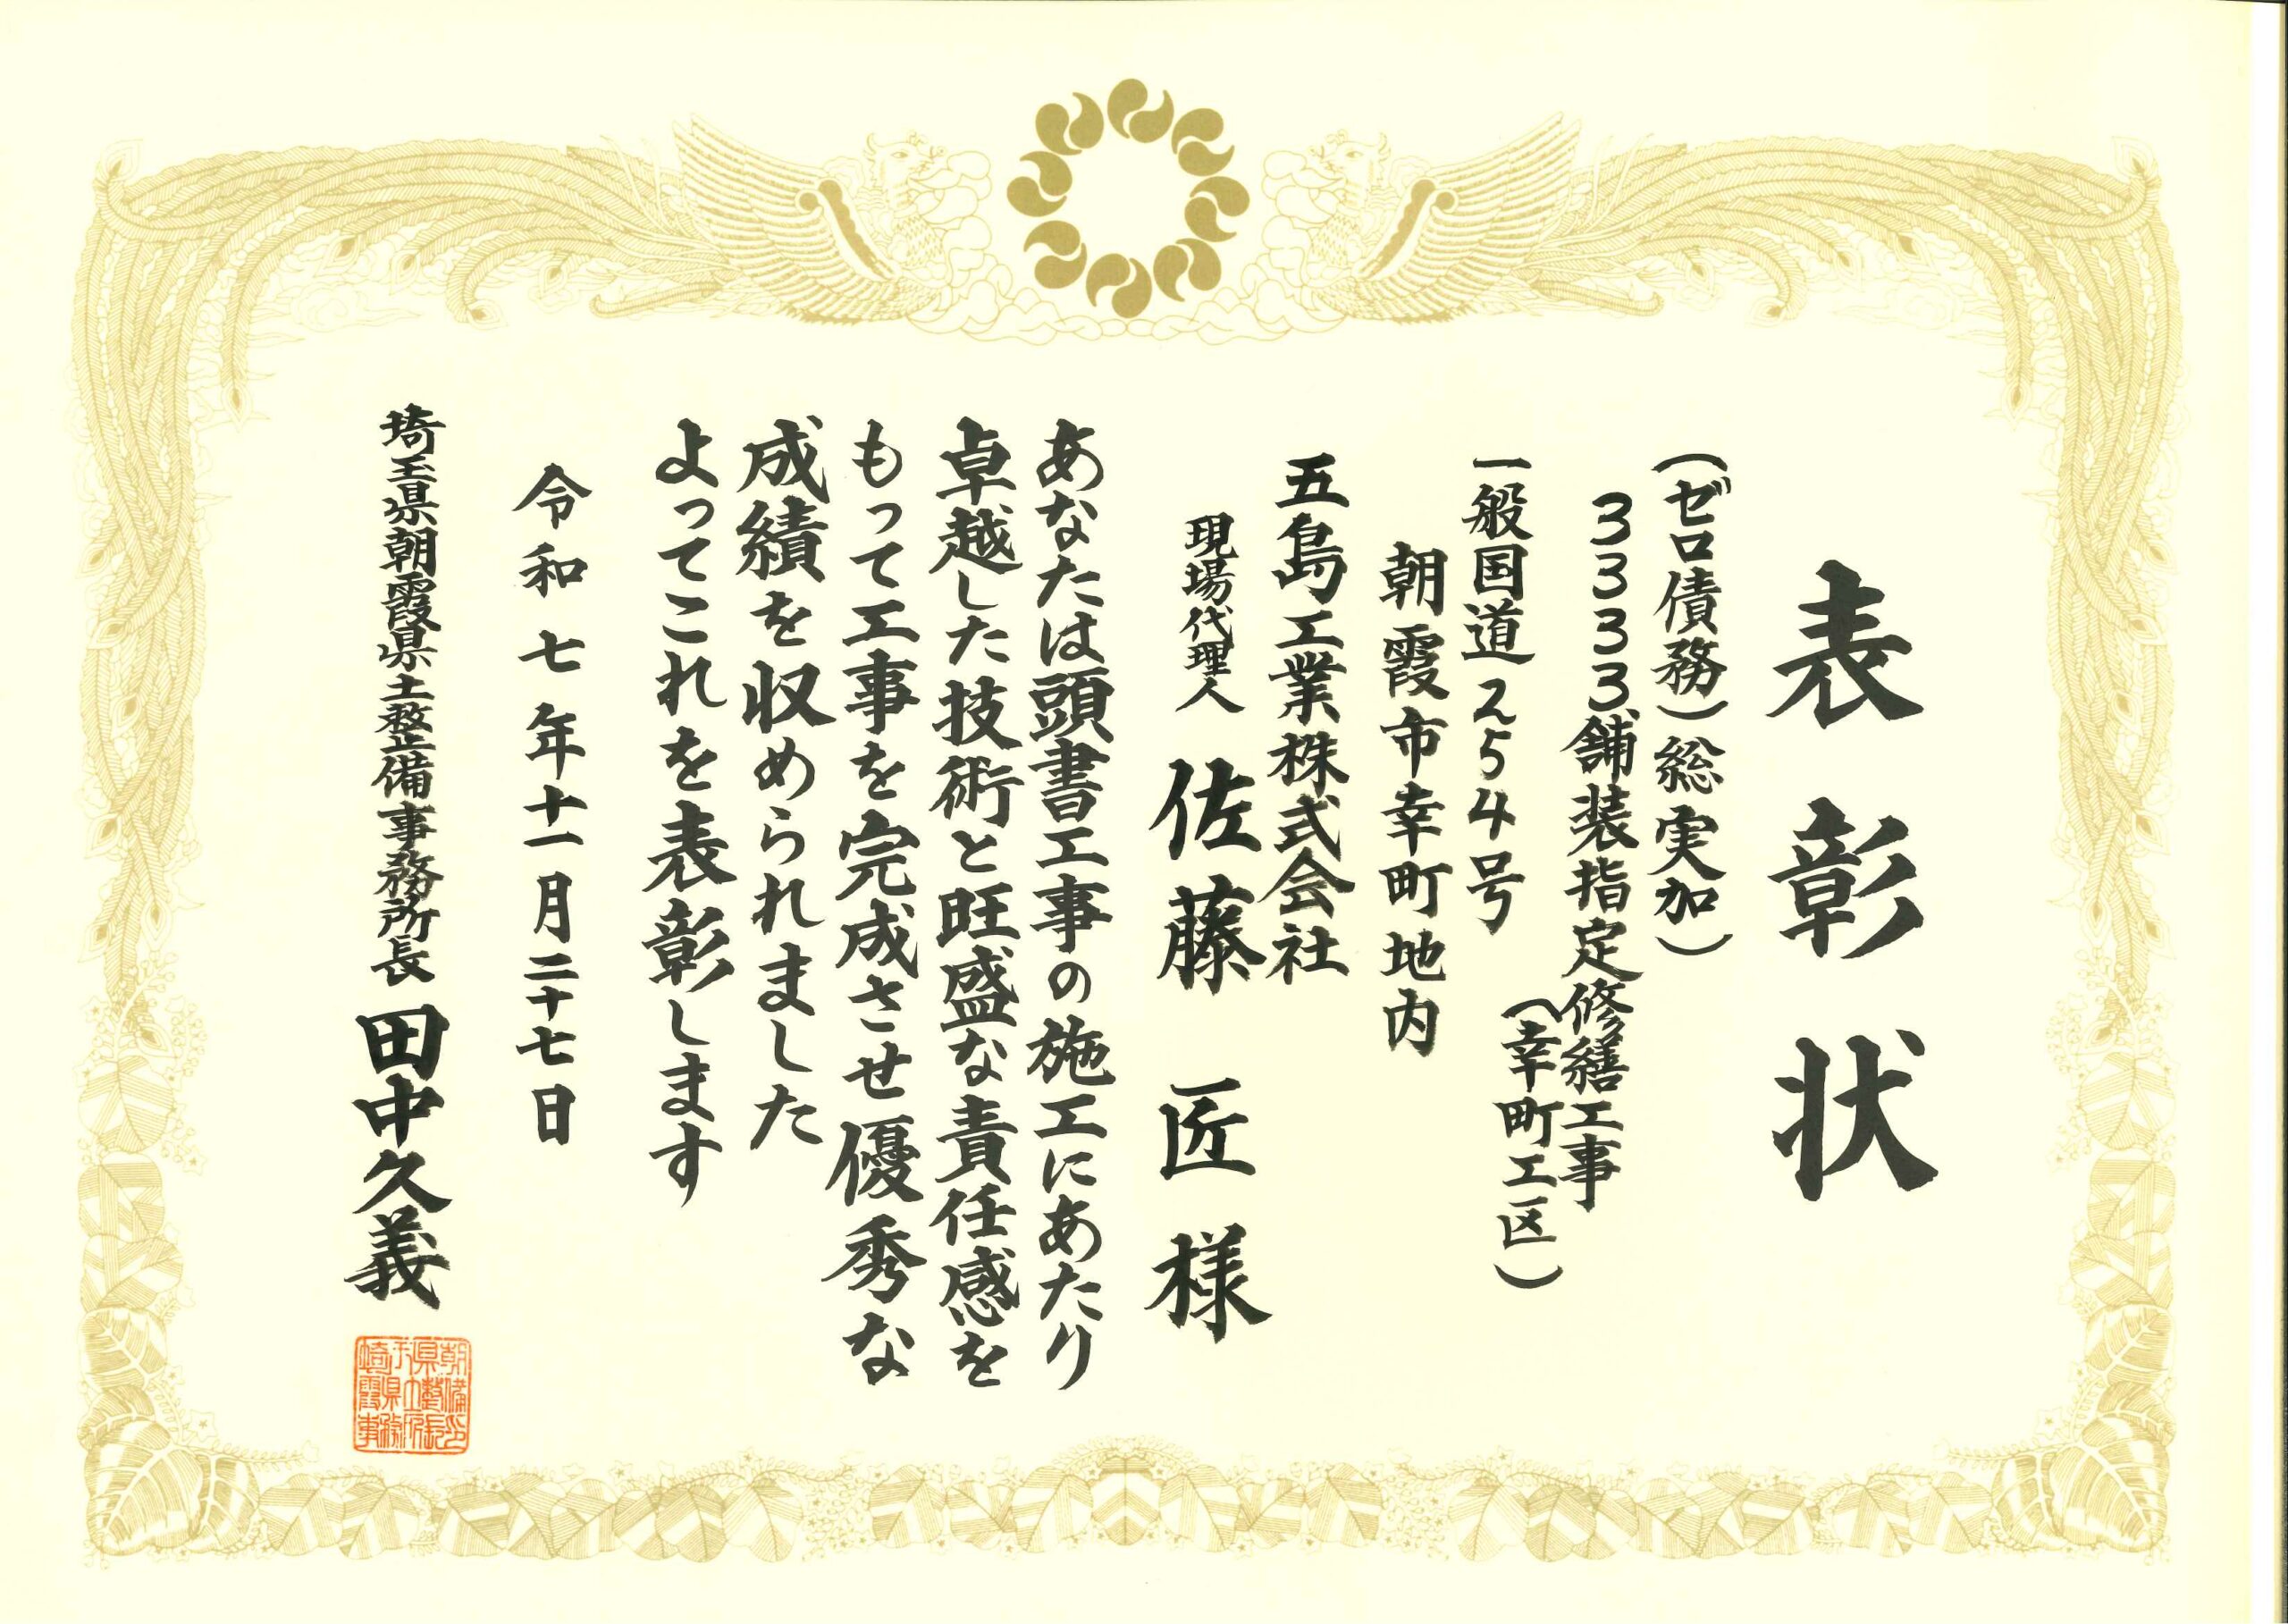 表彰状
(ゼロ債務)総実加)
3333舗装指定修繕工事
(幸町工区)
一般国道254号
朝霞市幸町地内
五島工業株式会社
現場代理人 佐藤 匠 様
あなたは頭書工事の施工にあたり
卓越した技術と旺盛な責任感を
もって工事を完成させ優秀な
成績を収められました
よってこれを表彰します
令和七年十一月二十七日
埼玉県朝霞県土整備事務所長 田中久義